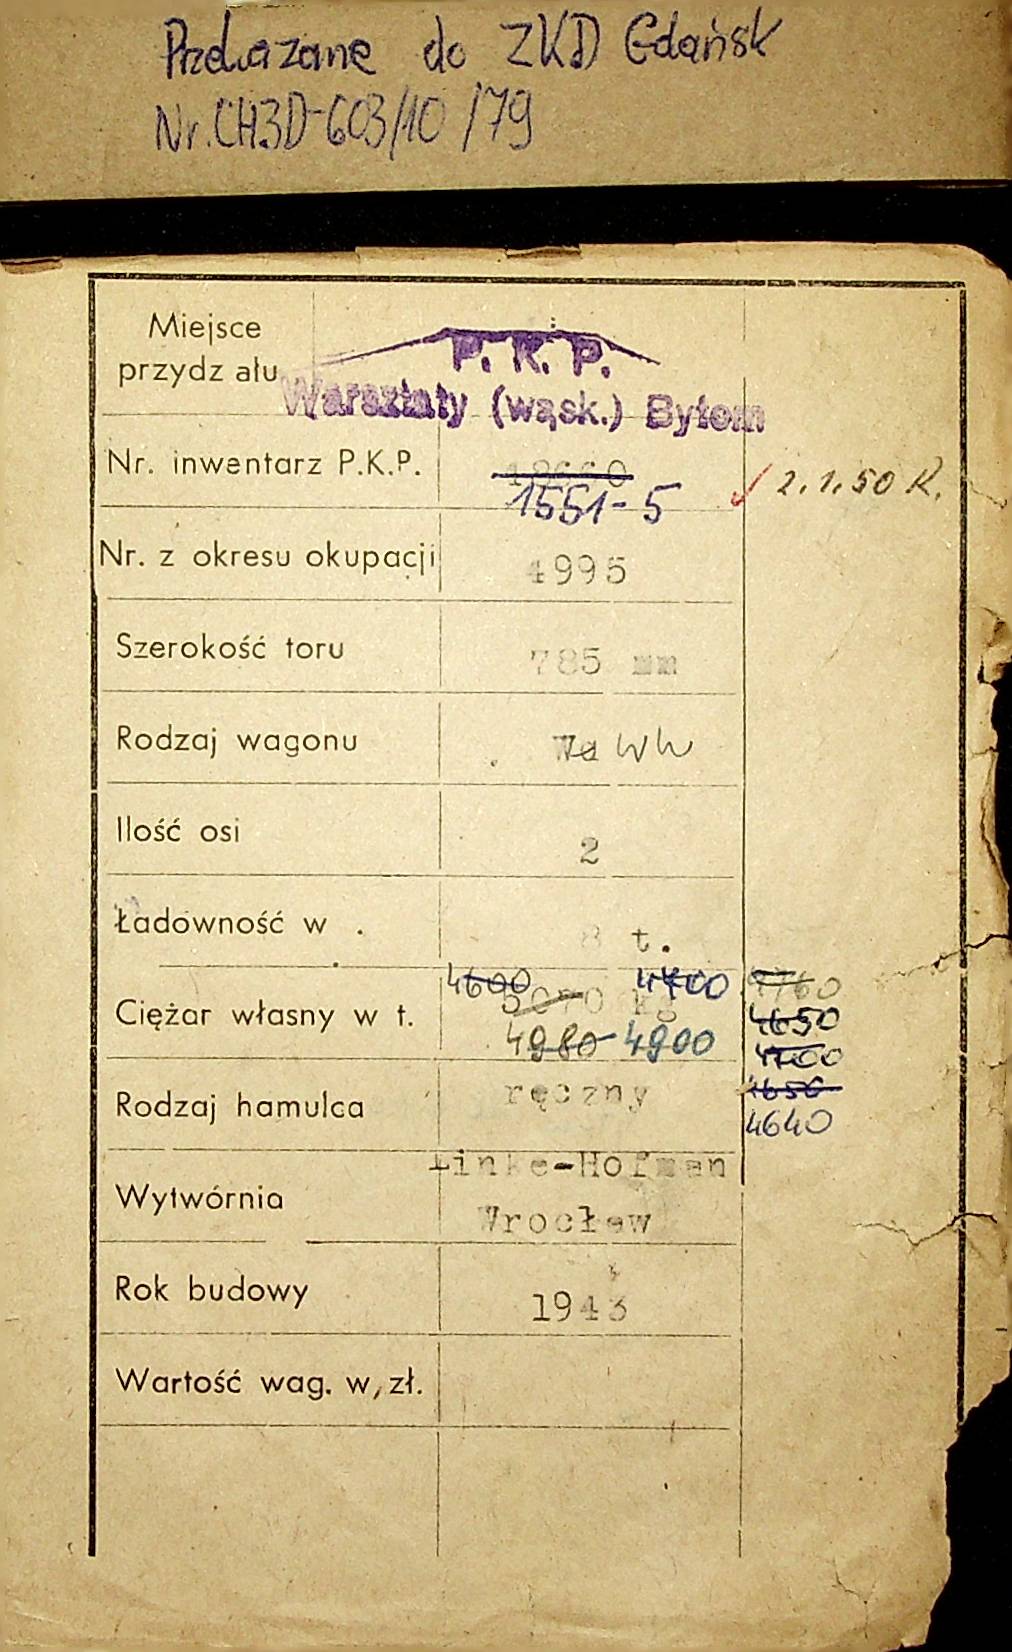 Przekazane do ZKD Gdańsk
Nr. CH3D-603/10/79
Miejsce
przydz ału
P. K. P.
Warsztaty (wąsk.) Bytom
Nr. inwentarz P.K.P.
1551-5
2.1.50 R.
Nr. z okresu okupacji 4995
Szerokość toru 785 mm
Rodzaj wagonu Wa Wh
Ilość osi 2
Ładowność w . 8 t.
4600 4700 4760
Ciężar własny w t. 5070 kg 4650
4980 4900 4700
4650
Rodzaj hamulca ręczny 4640
Linke-Hofman
Wytwórnia
Wrocław
Rok budowy 1943
Wartość wag. w, zł.